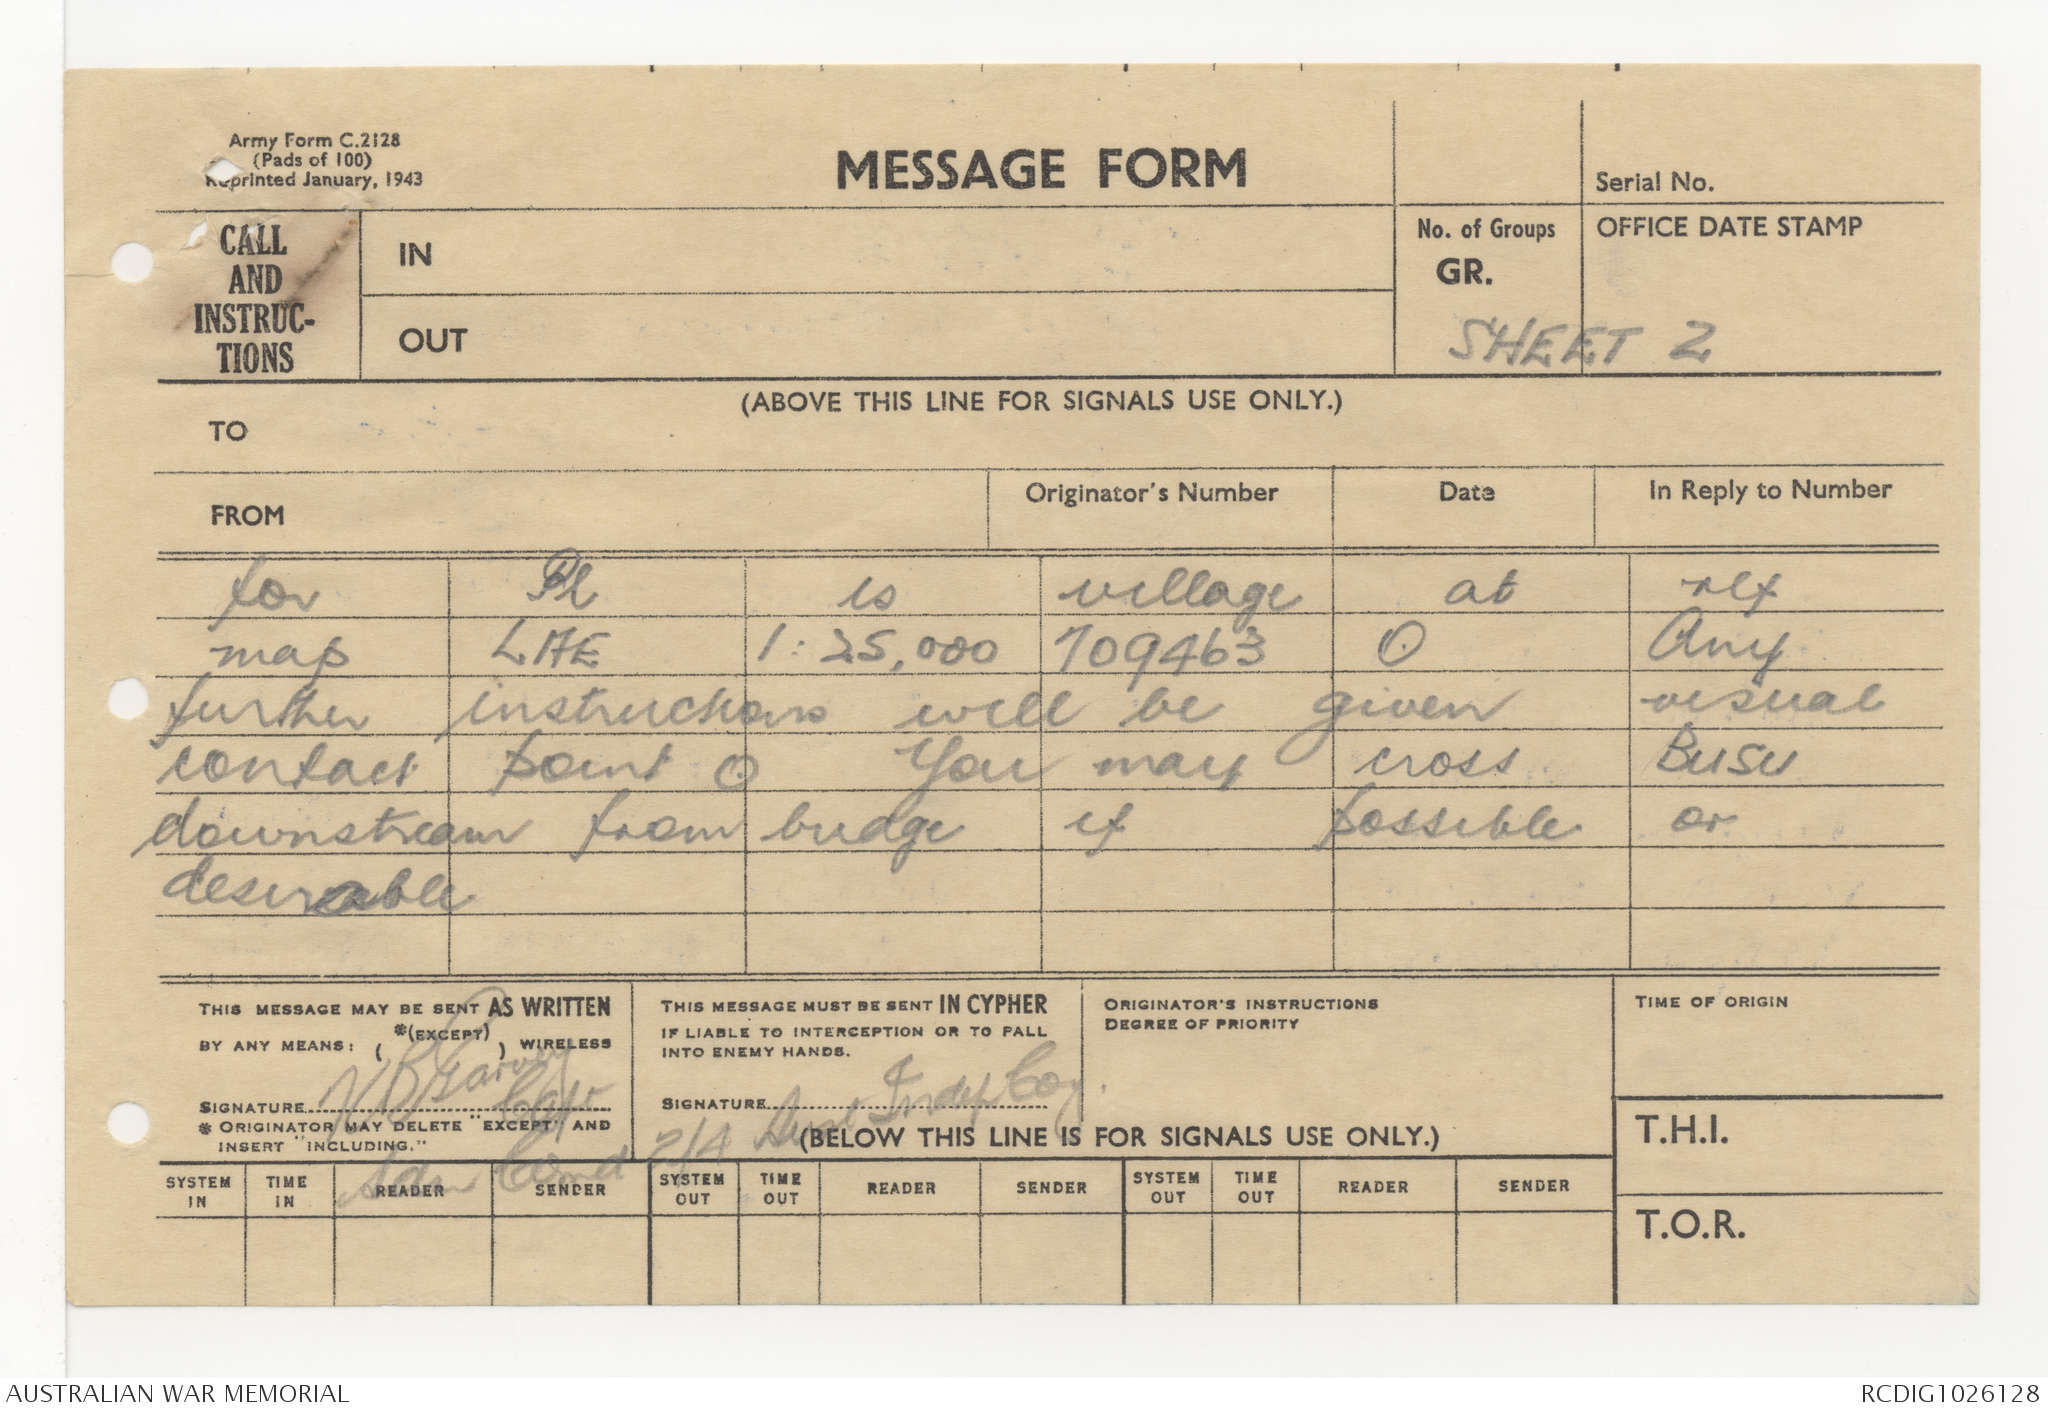 Army Form C.2128
(Pads of 100)
Reprinted January, 1943
MESSAGE FORM
Serial No.
CALL
AND
INSTRUC-
TIONS
IN
OUT
No. of Groups
GR.
OFFICE DATE STAMP
SHEET 2
(ABOVE THIS LINE FOR SIGNALS USE ONLY.)
TO
FROM
Originator's Number
Date
In Reply to Number
for Pl is village at ref
map LAE 1:25,000 709463 O Any
further instructions will be given visual
contact point O You may cross Busu
downstream from bridge if possible or
desirable
THIS MESSAGE MAY BE SENT AS WRITTEN
BY ANY MEANS: ( *(EXCEPT) ) WIRELESS
SIGNATURE
Garvey Capt
* ORIGINATOR MAY DELETE "EXCEPT" AND
INSERT "INCLUDING."
THIS MESSAGE MUST BE SENT IN CYPHER
IF LIABLE TO INTERCEPTION OR TO FALL
INTO ENEMY HANDS.
SIGNATURE
Comd 2/4 Aust Indep Coy.
ORIGINATOR'S INSTRUCTIONS
DEGREE OF PRIORITY
TIME OF ORIGIN
(BELOW THIS LINE IS FOR SIGNALS USE ONLY.)
T.H.I.
T.O.R.
SYSTEM IN
TIME IN
READER
SENDER
SYSTEM OUT
TIME OUT
READER
SENDER
SYSTEM OUT
TIME OUT
READER
SENDER
AUSTRALIAN WAR MEMORIAL
RCDIG1026128